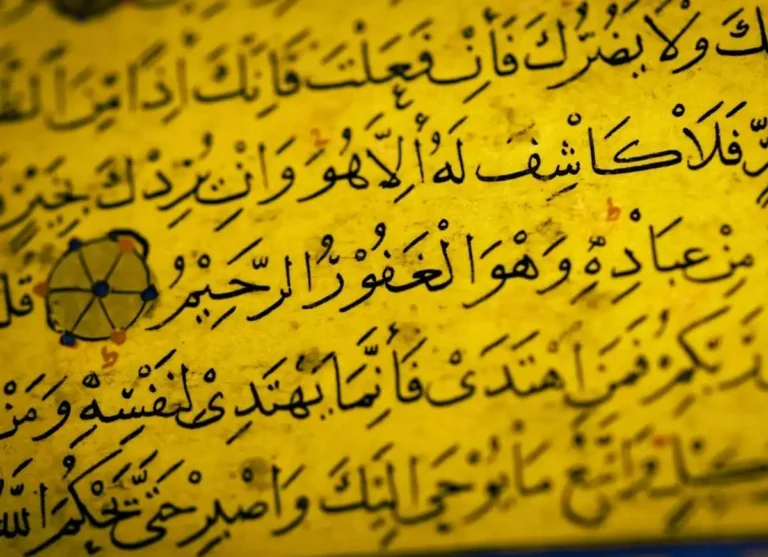 وَلَا يَضُرُّكَ فَاِنْ فَعَلْتَ فَاِنَّكَ اِذًا مِنَ
فَلَا كَاشِفَ لَهُٓ اِلَّا هُوَ وَاِنْ يُرِدْكَ بِخَيْرٍ
مِنْ عِبَادِهٖ وَهُوَ الْغَفُورُ الرَّحِيمُ قُلْ
رَبِّكُمْ فَمَنِ اهْتَدَىٰ فَاِنَّمَا يَهْتَدِى لِنَفْسِهٖ وَمَنْ
وَاتَّبِعْ مَا يُوحَىٰ اِلَيْكَ وَاصْبِرْ حَتَّىٰ يَحْكُمَ اللّٰهُ